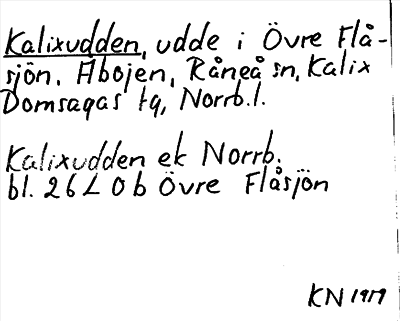 Kalixudden, udde i Övre Flå-
sjön, Åbojen, Råneå sn, Kalix
Domsagas tg, Norrb.l.
Kalixudden ek Norrb.
bl. 26 L 0 b Övre Flåsjön
KN 1979